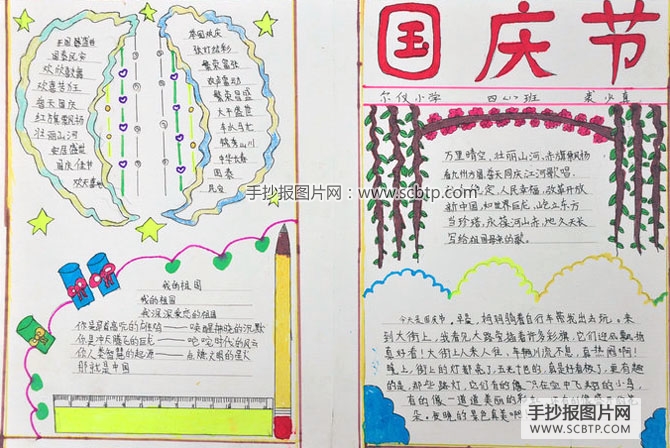 国庆节
尔仪小学 四(二)班
万里晴空,壮丽山河,赤旗飘扬
看九州方圆,普天同庆,江河歌唱
定,人民幸福,改革开放
新中国,和世界巨龙,屹立东方
写给祖国母亲的歌。
今天是国庆节,早晨,妈妈骑着自行车带我出去玩。来
到大街上,我看见大路旁插着许多彩旗,它们迎风飘扬
真好看!大街上人来人往,车辆川流不息,真热闹啊!
晚上,街上的灯都亮了,五光十色的,真是好看极了,更有趣
的是,那些路灯,它们有的像一只在空中飞翔的小鸟
有的像一道道美丽的
朵,夜晚的景色真美
举国欢庆
张灯结彩
繁荣富强
欢声雷动
繁荣昌盛
太平盛世
车水马龙
锦秀山川
中华大春
国泰
民安
国泰民安
欢欣鼓舞
欢喜若狂
普天同庆
红旗飘扬
壮丽山河
国庆佳节
欢天喜地
我的祖国
我的祖国
我深深爱恋的祖国
你是昂首高亢的雄鸡——唤醒拂晓的沉默
你是冲天腾飞的巨龙——叱咤时代的风云
你人类智慧的起源——点燃文明的星火
那就是中国
手抄报图片网:www.scbtp.com
手抄报图片网
WWW.SCBTP.COM